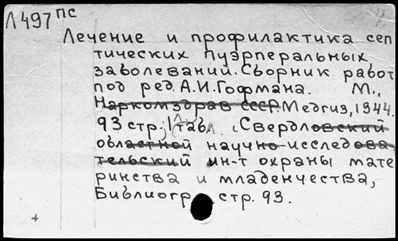 Л497 пс
Лечение и профилактика сеп
тических пуэрперальных
заболеваний. Сборник работ
под ред. А.И. Гофмана. М.,
Наркомздрав СССР. Медгиз, 1944.
93 стр; 1 табл. (Свердловский
областной научно-исследова
тельский ин-т охраны мате
ринства и младенчества,
Библиогр стр. 93.